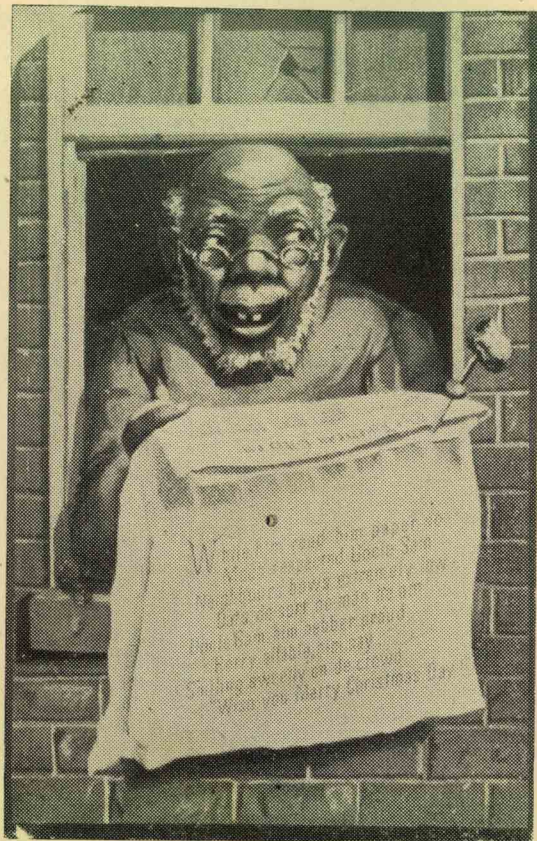 While him read him paper so
Much respected Uncle Sam
Neighbours bows extremely low
Dats de sort ob man I's am
Uncle Sam him nebber proud
Berry affable, him say
Smiling sweetly on de crowd
"Wish you Merry Christmas Day"